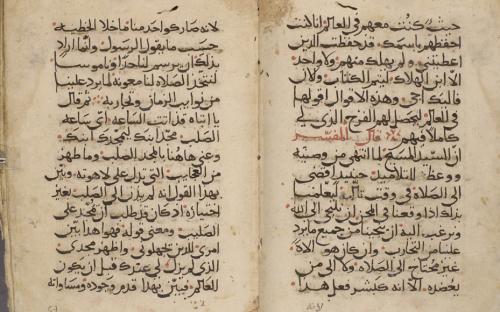 حيث كنت معهم في العالم انا كنت
احفظهم باسمك قد حفظت الذين
اعطيتني ولم يهلك منهم ولا واحد
الا ابن الهلاك ليتم الكتاب والان
فاليك اجي وهذه الاقوال اقولها
في العالم ليحصل لهم الفرح الذي لي
كاملا فيهم قال المفسر
ان السيد المسيح لما انتهى من وصية
ووعظ التلاميذ حينيذ افضى
الى الصلاه في وقت تالمه ليعلمنا
بذلك اذا وقعنا في المحن ان نلتجي الى الله
ونرغب اليه ان ينجينا من جميع ما يرد
علينا من التجارب وان كان هو الاه
غير محتاج الى الصلاه ولا الى من
يعضده الا انه كبشر فعل هذا
لانه صار كواحد منا ما خلا الخطيه
حسب ما يقول الرسول وانما اراد
بذلك ان يرسم لنا حدا وناموسا
لنتخذ الصلاه لنا معونه لما يرد علينا
من نوايب الزمان وتجاربه ثم قال
يا ابتاه قد اتت الساعه اي ساعه
الصلب مجد ابنك ليمجدك ابنك
وعنى هاهنا بالمجد الصلب وما ظهر
من العجايب التي تدل على لاهوته وبين
بهذا القول انه لم الى الصلب بغير
اختياره اذ كان قد طلب ان يمجد على
الصلب ومعنى قوله فهو هذا بين
امري للذين يجهلوني واظهر مجدي
الذي لم يزل لي عندك قبل ان يكون
العالم فبين بهذا قدم وجوده ومساواته